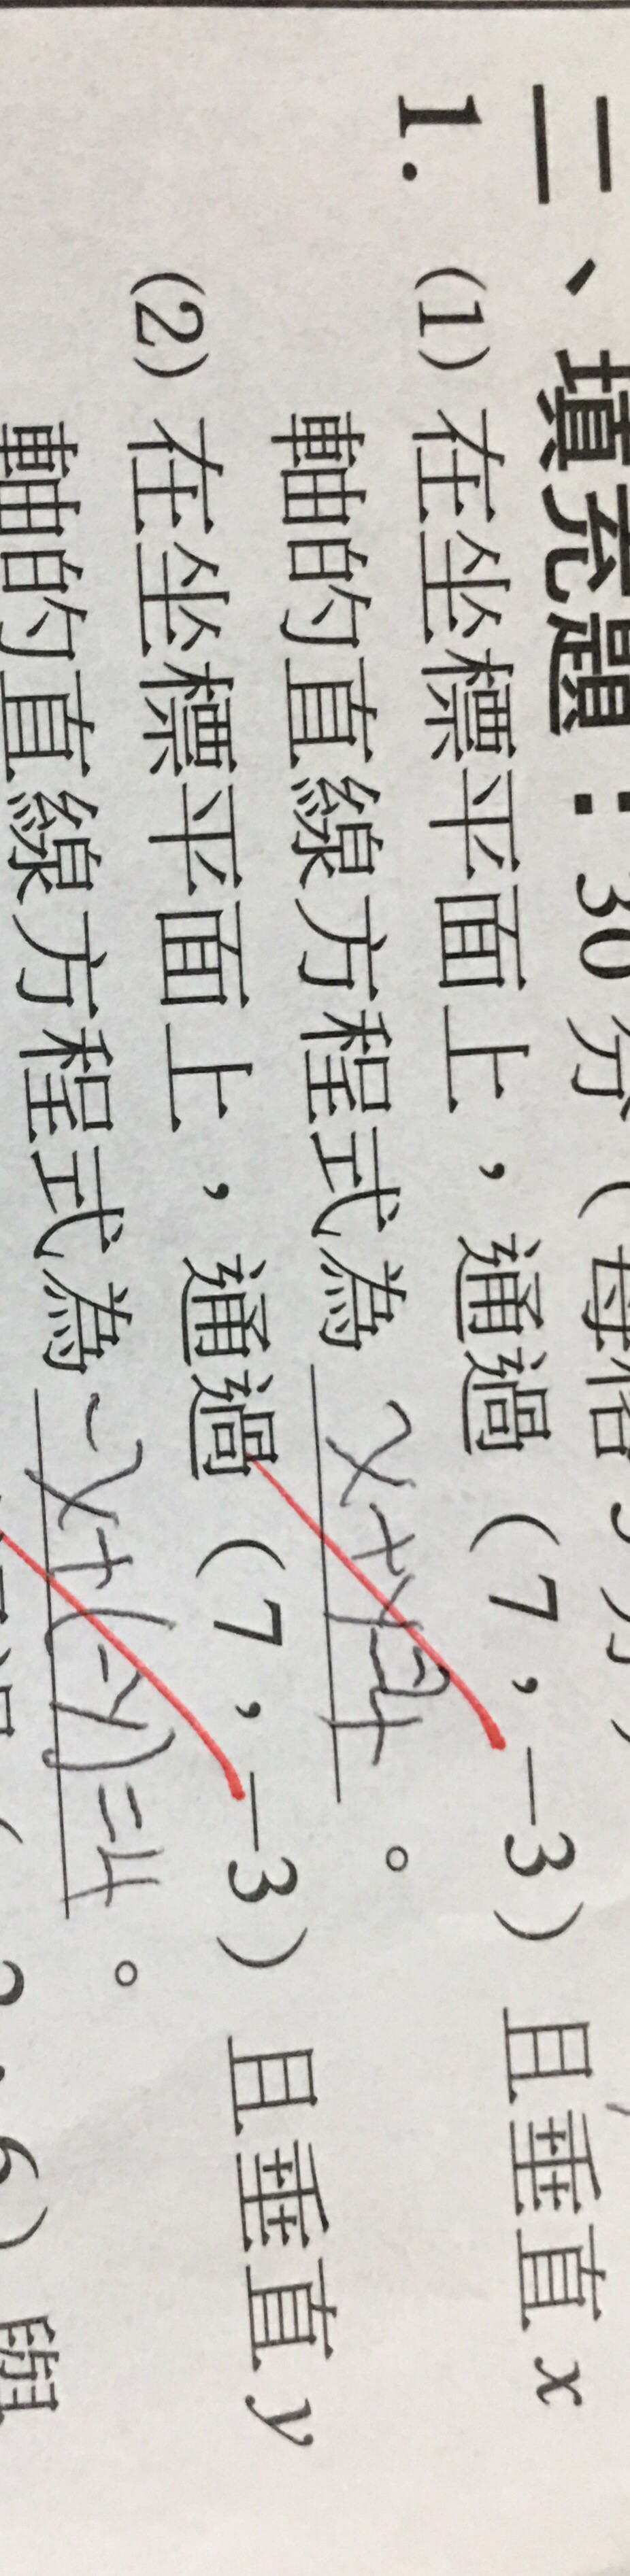 二、填充題：30 分（每格
1. (1) 在坐標平面上，通過（7，－3）且垂直 x
軸的直線方程式為 x+y=4 。
(2) 在坐標平面上，通過（7，－3）且垂直 y
軸的直線方程式為 -x+(-y)=4 。